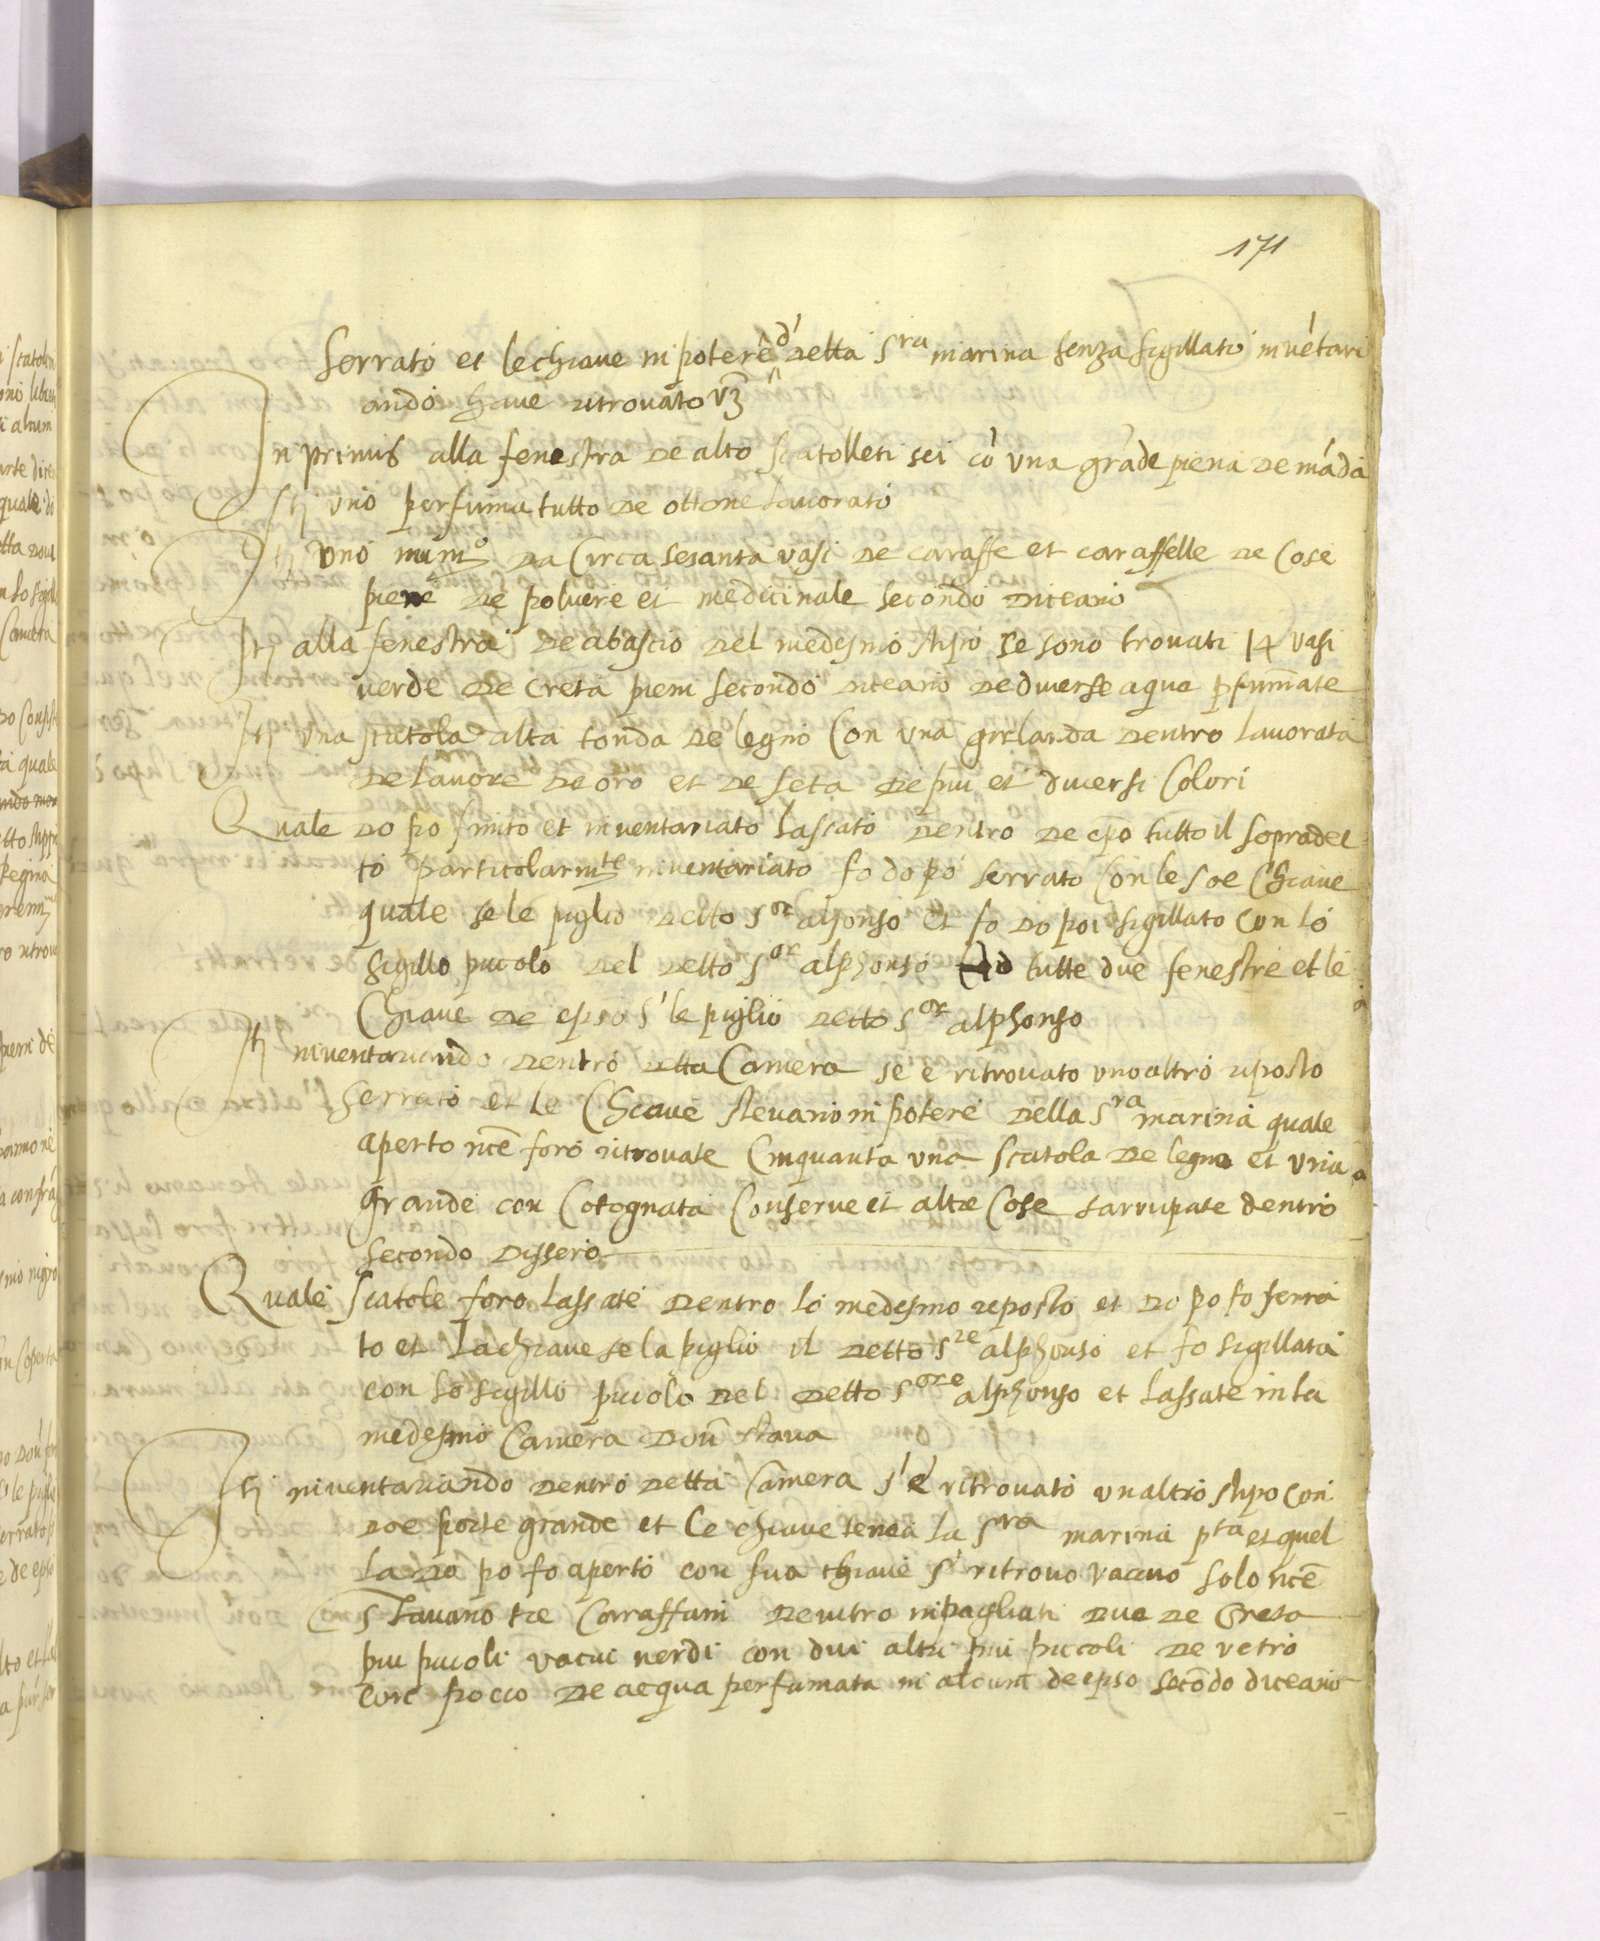 171
serrato et le chiave in poterẽ d' detta S^ra marina senza sigillati invẽtari
ando have ritrovato vz
In primis alla fenestra de alto scatolleti sei cõ una grãde piena de mãdã
Itj uno perfuma tutto de ottone lavorato
Itj uno num^o da Circa sesanta vasi de caraffe et caraffelle de Cose
piene de polvere et medicinale secondo diceano
Itj alla fenestra de abascio del medesmo stipo se sono trovati 14 vasi
verde de creta pieni secondo diceano de diverse aqua pfumate
Itj una scatola alta tonda de legno Con una girlanda dentro lavorata
de lavore de oro et de seta de piu et diversi Colori
Quale do po finito et inventariato lasciato dentro de epo tutto il sopradet
to particolarm^te inventariato fo do po serrato Con le soe Chiave
quale se le piglio detto S^or alfonso et fo do poi sigillato con lo
sigillo picolo del detto S^or alphonso tutte due fenestre et le
Chiave de epso s' le piglio detto S^or alphonso
Itj inventariando dentro dtta Camera se è ritrovato uno altro riposto
serrato et le Chiave stevano in potere della S^ra marina quale
aperto nce foro ritrovate Cinquanta una scatola de legno et una
grande con Cotognata Conserve et altre Cose sarrupate dentro
secondo dissero
Quale scatole foro lassate dentro lo medesmo reposto et do po fo serra
to et la chiave se la piglio il detto S^re alphonso et fo sigillata
con lo sigillo picolo del detto S^ore alphonso et lassate in la
medesmo Camera doũ stava
Itj inventariando dentro detta Camera s'è ritrovato un altro stipo con
doe porte grande et le chiave tenea la S^ra marina p^ta et quel
la do po fo aperto con sua chiave s' ritrovo vacuo solo nce
stavano tre Carraffuni de vitro inpagliati due de Creta
piu picoli vacui verdi con dui altri piu piccoli de vetro
con pocco de acqua perfumata in alcun de epso secõdo diceano